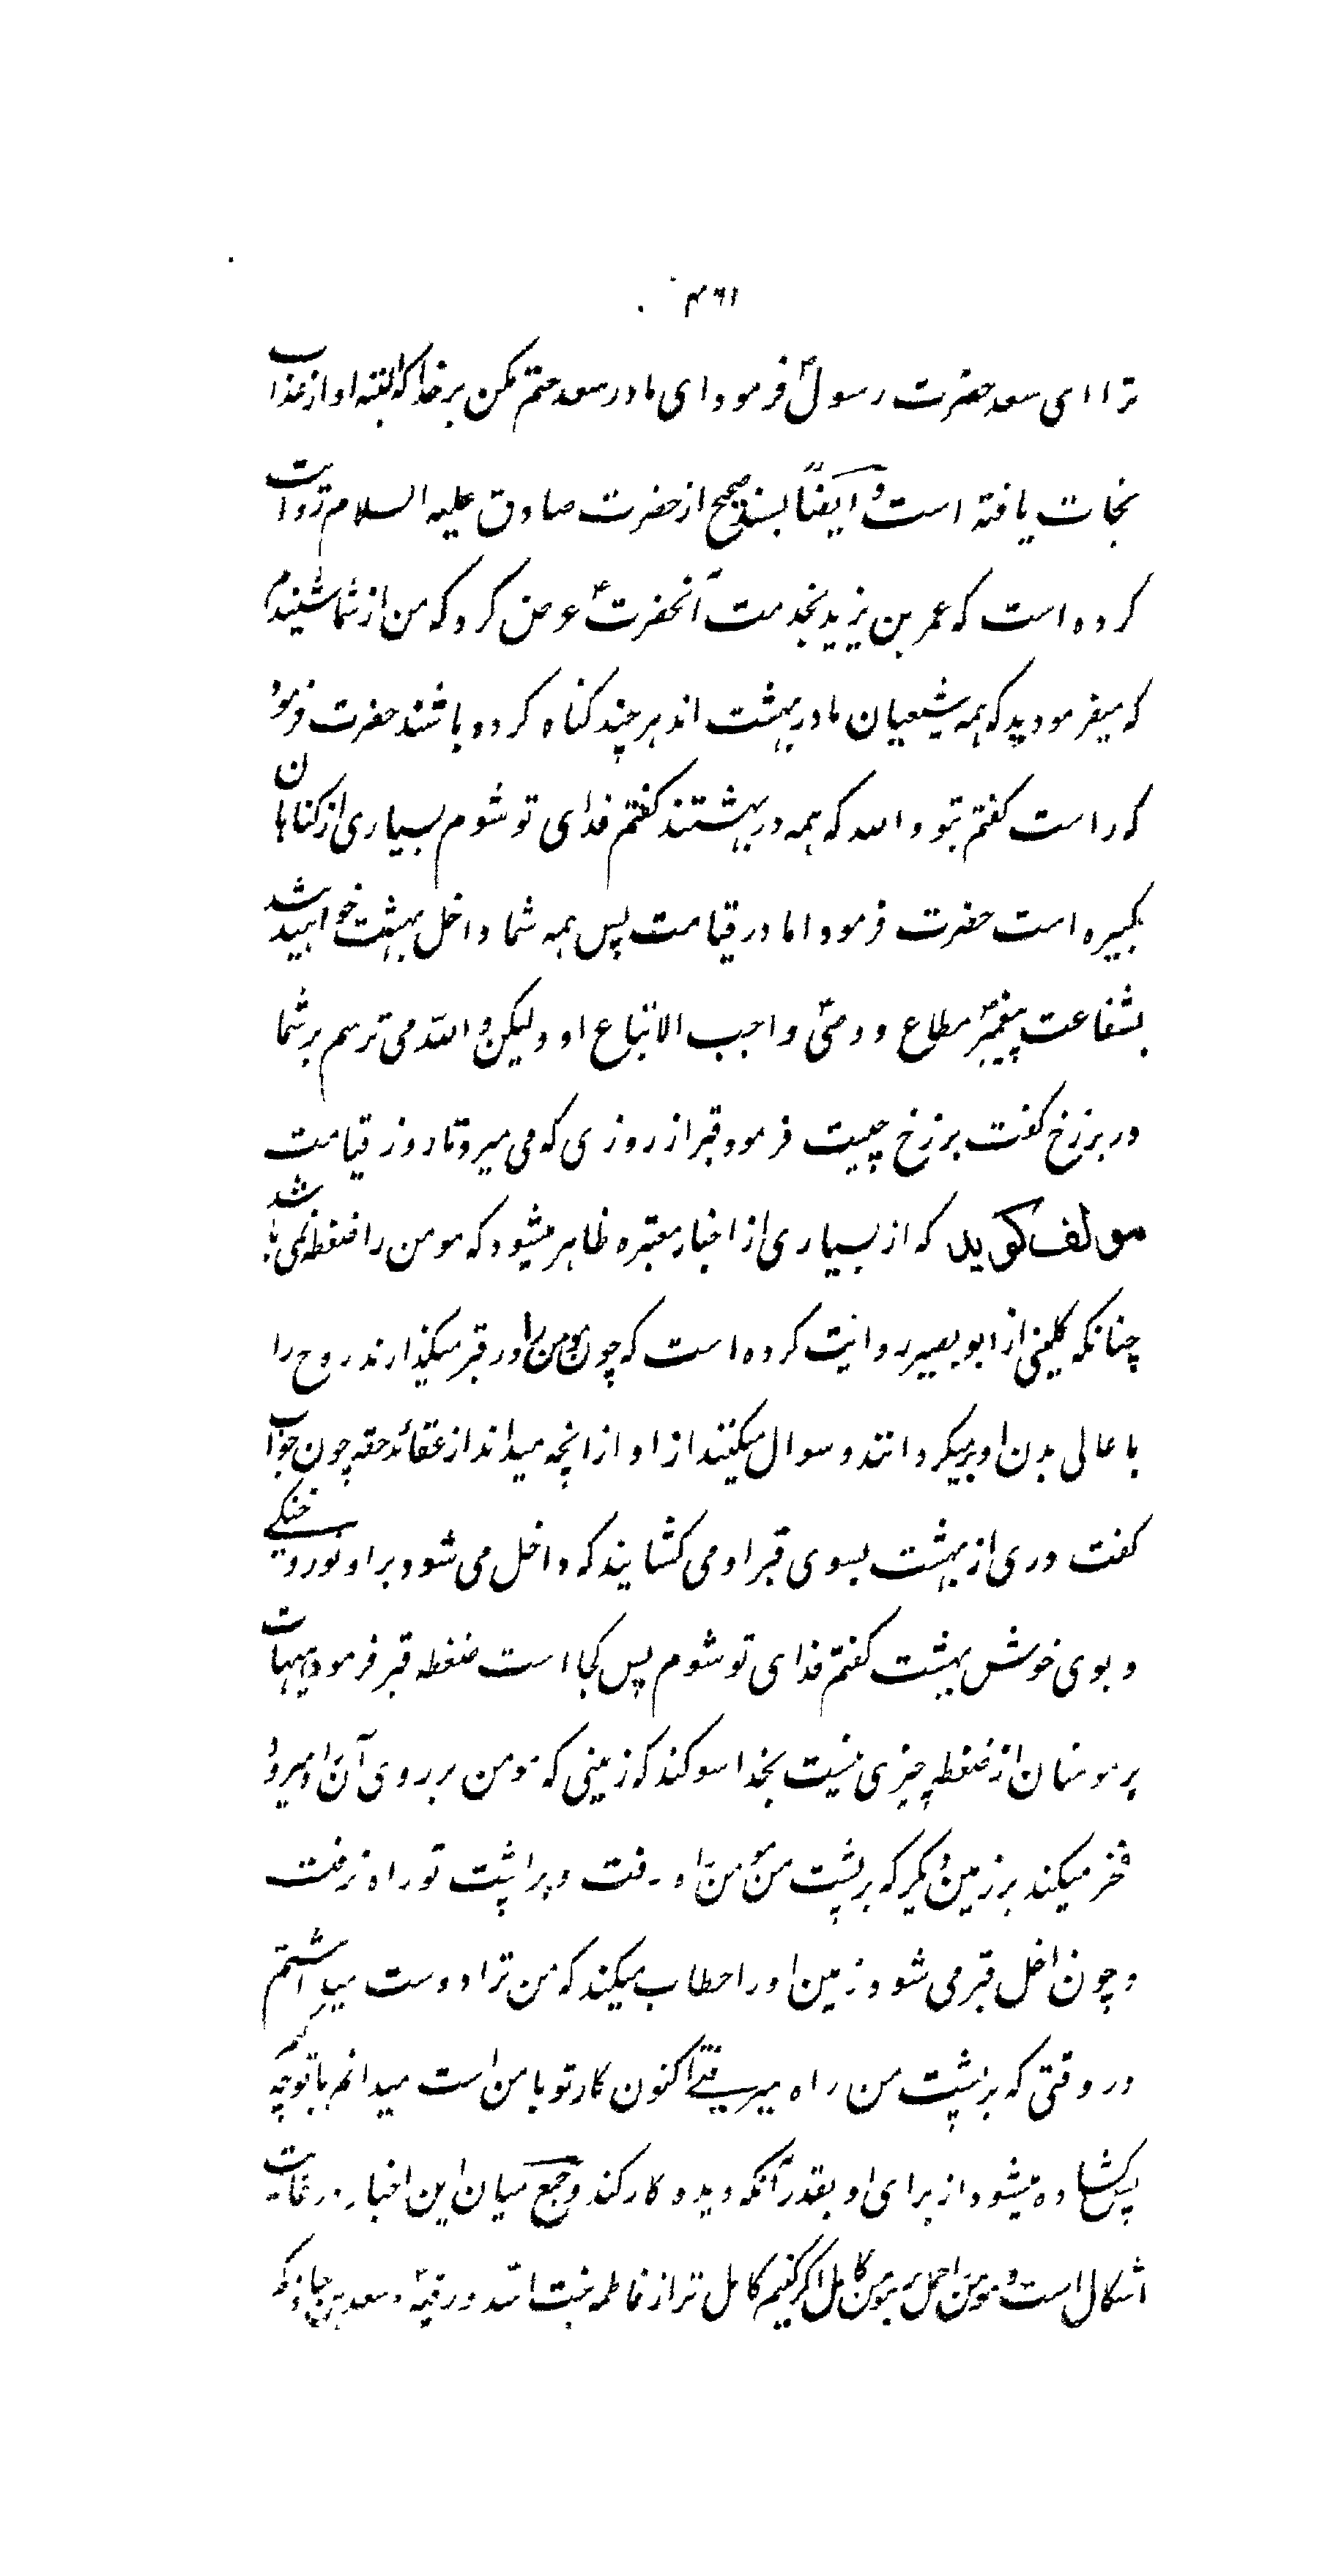 ۴۶۱
ترا ای سعد حضرت رسولؐ فرمود ای مادر سعد حتم مکن بر خدا که البته او از عذاب
نجات یافته است و ایضًا بسند صحیح از حضرت صادق علیه السلام روایت
کرده است که عمر بن یزید بخدمت آنحضرتؑ عرض کرد که من از شما شنیدم
که میفرمودید که همه شیعیان ما در بهشت اند هر چند کناه کرده باشند حضرت فرمود
که راست کفتم بتو والله که همه در بهشتند کفتم فدای تو شوم بسیاری از کناهان
کبیره است حضرت فرمود اما در قیامت پس همه شما داخل بهشت خواهید شد
بشفاعت پیغمبرؐ مطاع و وصیؑ واجب الاتباع او ولیکن والله می ترسم بر شما
در برزخ کفت برزخ چیست فرمود قبر از روزی که می میرد تا روز قیامت
مولف کوید که از بسیاری از اخبار معتبره ظاهر میشود که مومن را ضغطه نمی باشد
چنانکه کلینی از ابو بصیر روایت کرده است که چون مومن را در قبر میکذارند روح را
باعالی بدن او برمیکردانند و سوال میکنند از او از انچه میداند از عقائد حقه چون جواب
کفت دری از بهشت بسوی قبر او می کشایند که داخل می شود بر او نور و خنکی
و بوی خوش بهشت کفتم فدای تو شوم پس کجا است ضغطه قبر فرمود هیهات
بر مومنان از ضغطه چیزی نیست بخدا سوکند که زمینی که مومن بر روی آن راه میرود
فخر میکند بر زمین دیکر که بر پشت من مومن راه رفت و بر پشت تو راه نرفت
و چون داخل قبر می شود زمین او را خطاب میکند که من ترا دوست میداشتم
در وقتی که بر پشت من راه میرفتی اکنون کار تو با من است میدانم با تو چه کنم
پس کشاده میشود از برای او بقدر آنکه دیده کار کند و جمع میان این اخبار در غایت
اشکال است و مومن را حمل بر مومن کامل اکر کنیم کامل تر از فاطمه بنت اسد و رقیه و سعد بن معاذ که